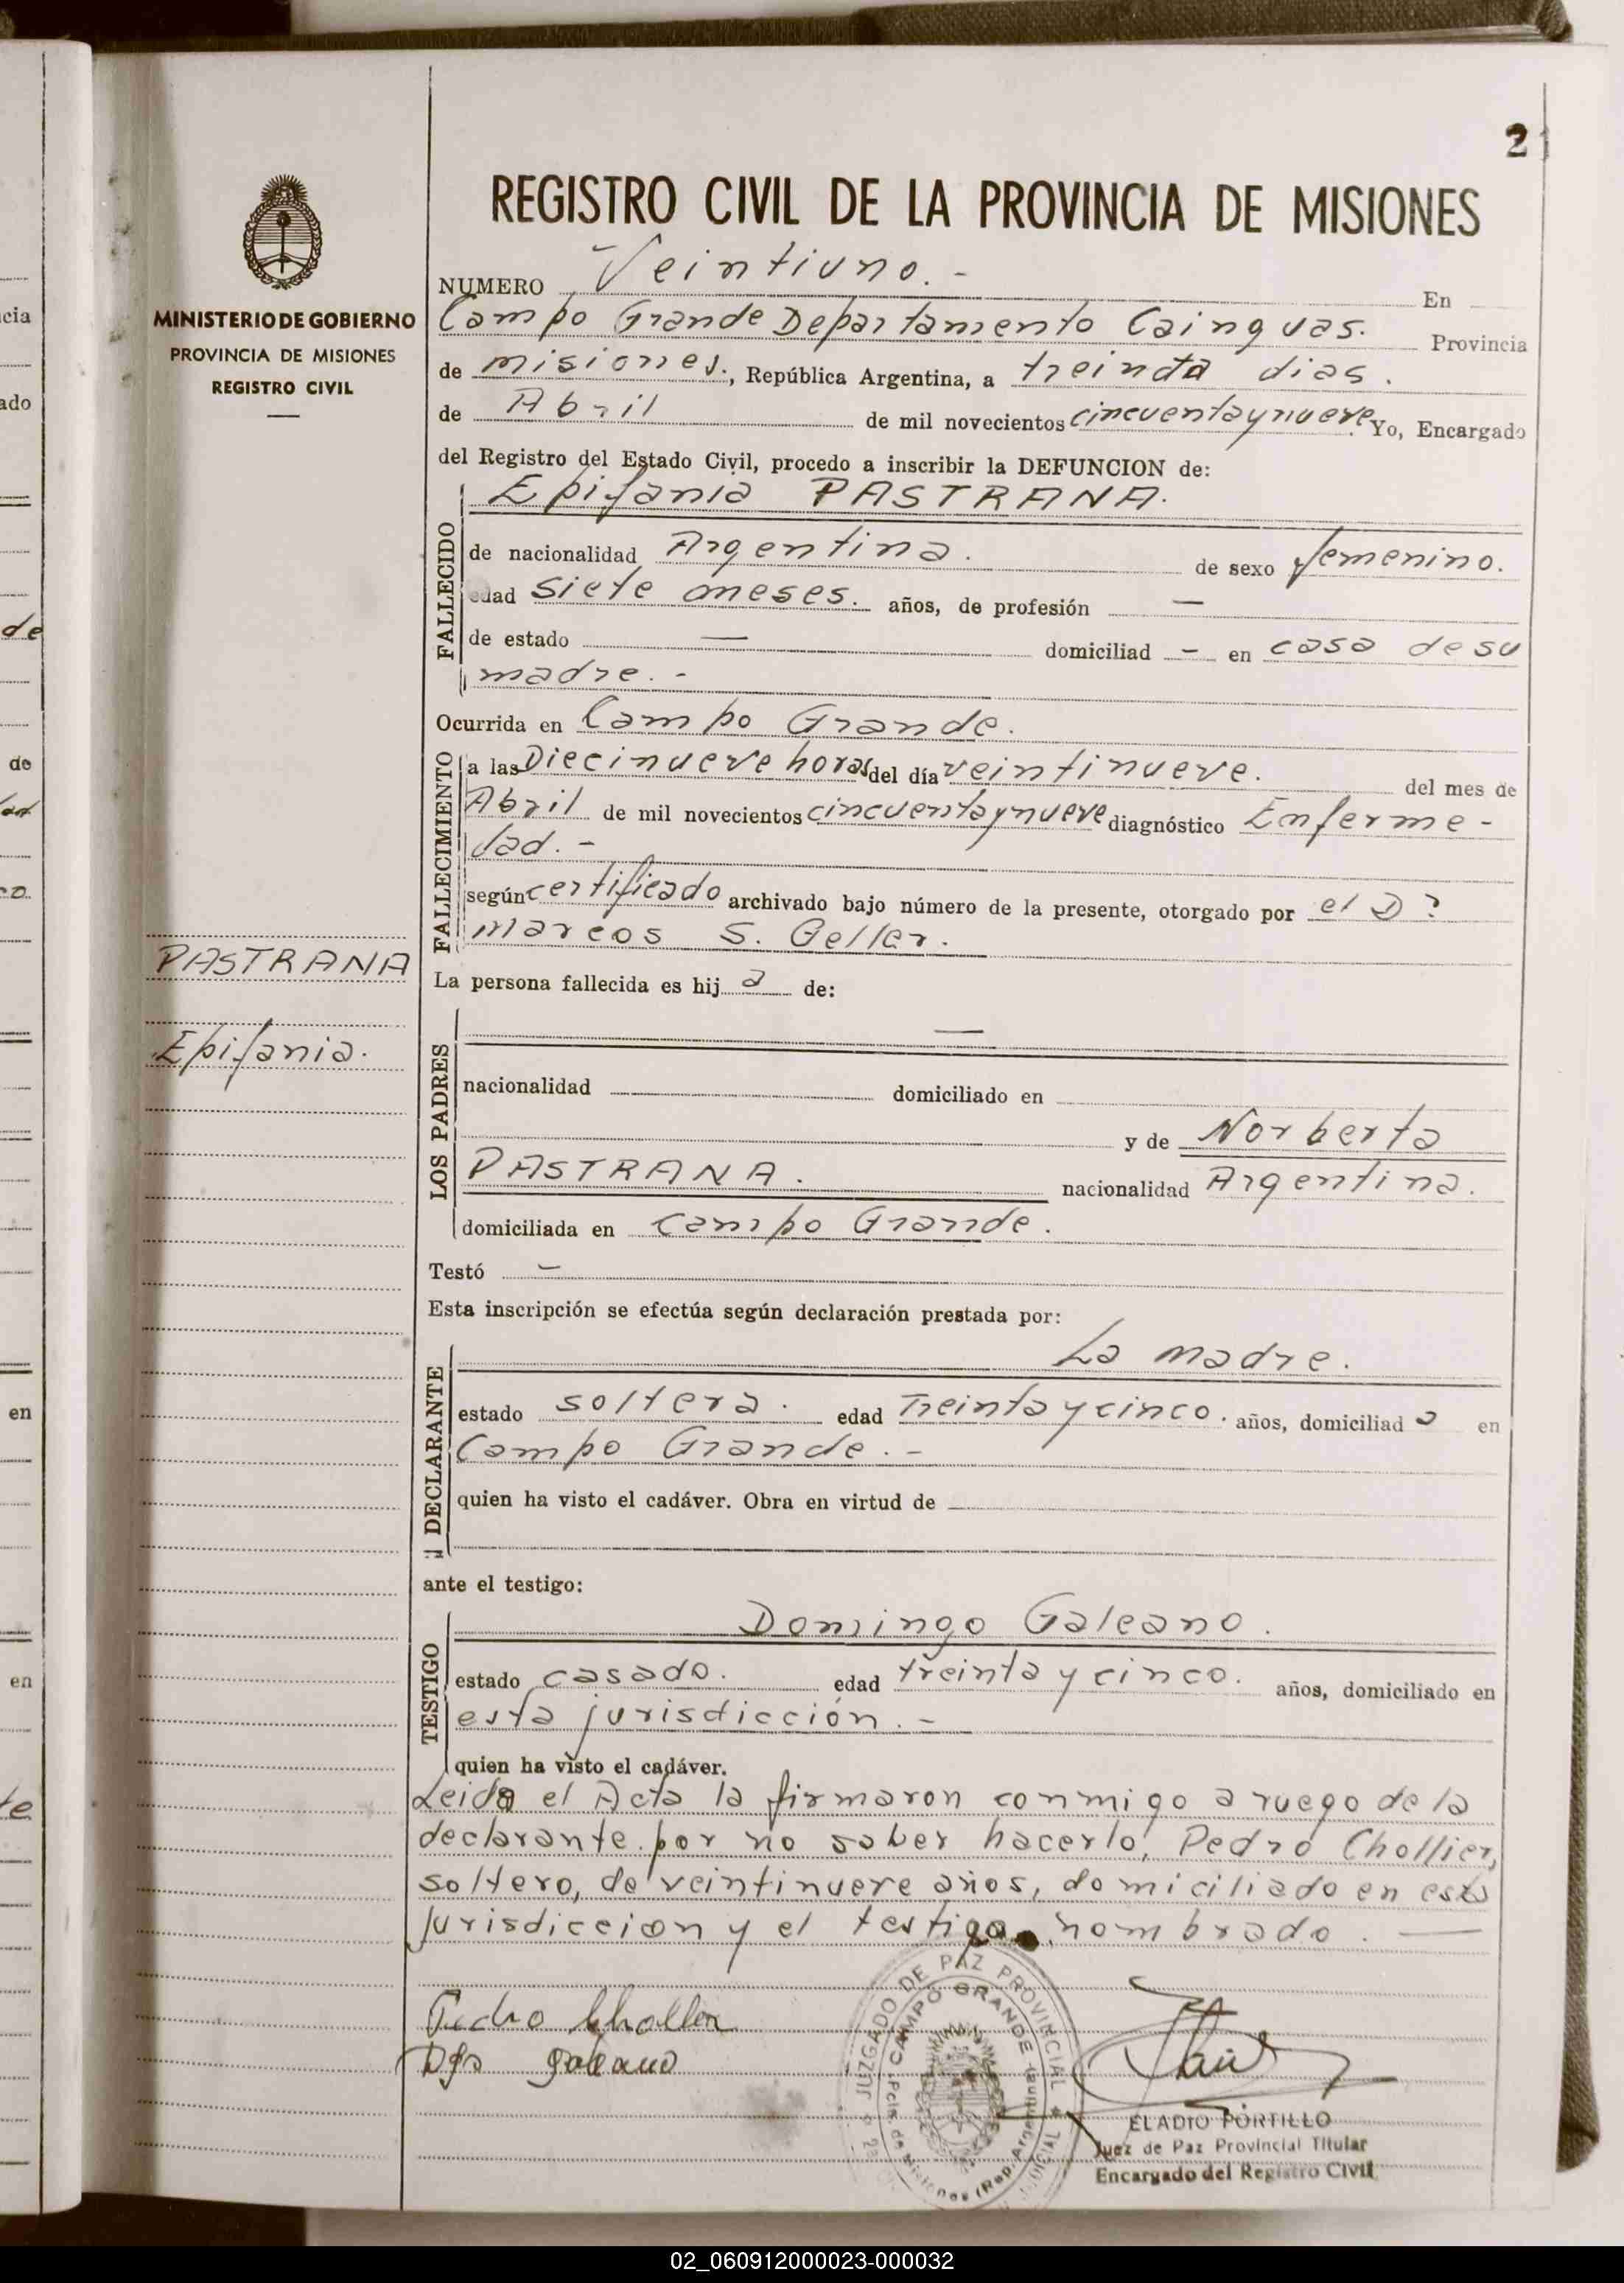 21
REGISTRO CIVIL DE LA PROVINCIA DE MISIONES
MINISTERIO DE GOBIERNO
PROVINCIA DE MISIONES
REGISTRO CIVIL
NUMERO Veintiuno.- En
Campo Grande Departamento Cainguas. Provincia
de misiones., República Argentina, a treinta dias.
de Abril de mil novecientos cincuenta y nueve Yo, Encargado
del Registro del Estado Civil, procedo a inscribir la DEFUNCION de:
Epifania PASTRANA.
FALLECIDO
de nacionalidad Argentina. de sexo femenino.
edad siete meses. años, de profesión —
de estado — domiciliad - en casa de su
madre.-
Ocurrida en Campo Grande.
FALLECIMIENTO
a las Diecinueve horas del día veintinueve. del mes de
Abril de mil novecientos cincuenta y nueve diagnóstico Enferme-
dad.-
según certificado archivado bajo número de la presente, otorgado por el D?
marcos S. Geller.
PASTRANA
Epifania.
La persona fallecida es hij a de:
—
LOS PADRES
nacionalidad domiciliado en
y de Norberta
PASTRANA. nacionalidad Argentina.
domiciliada en campo Grande.
Testó —
Esta inscripción se efectúa según declaración prestada por:
La madre.
DECLARANTE
estado soltera. edad Treinta y cinco. años, domiciliad a en
Campo Grande.-
quien ha visto el cadáver. Obra en virtud de
ante el testigo:
Domingo Galeano.
TESTIGO
estado casado. edad treinta y cinco. años, domiciliado en
esta jurisdicción.-
quien ha visto el cadáver.
Leida el Acta la firmaron conmigo a ruego de la
declarante por no saber hacerlo, Pedro Chollier,
soltero, de veintinueve años, domiciliado en esta
Jurisdiccion y el testigo nombrado. —
Pedro Chollier
Dgo Galeano
JUZGADO DE PAZ PROVINCIAL
CAMPO GRANDE
Pcia. de Misiones (Rep. Argentina)
ELADIO PORTILLO
Juez de Paz Provincial Titular
Encargado del Registro Civil
cia
ado
de
de
co.
en
en
te
02_060912000023-000032